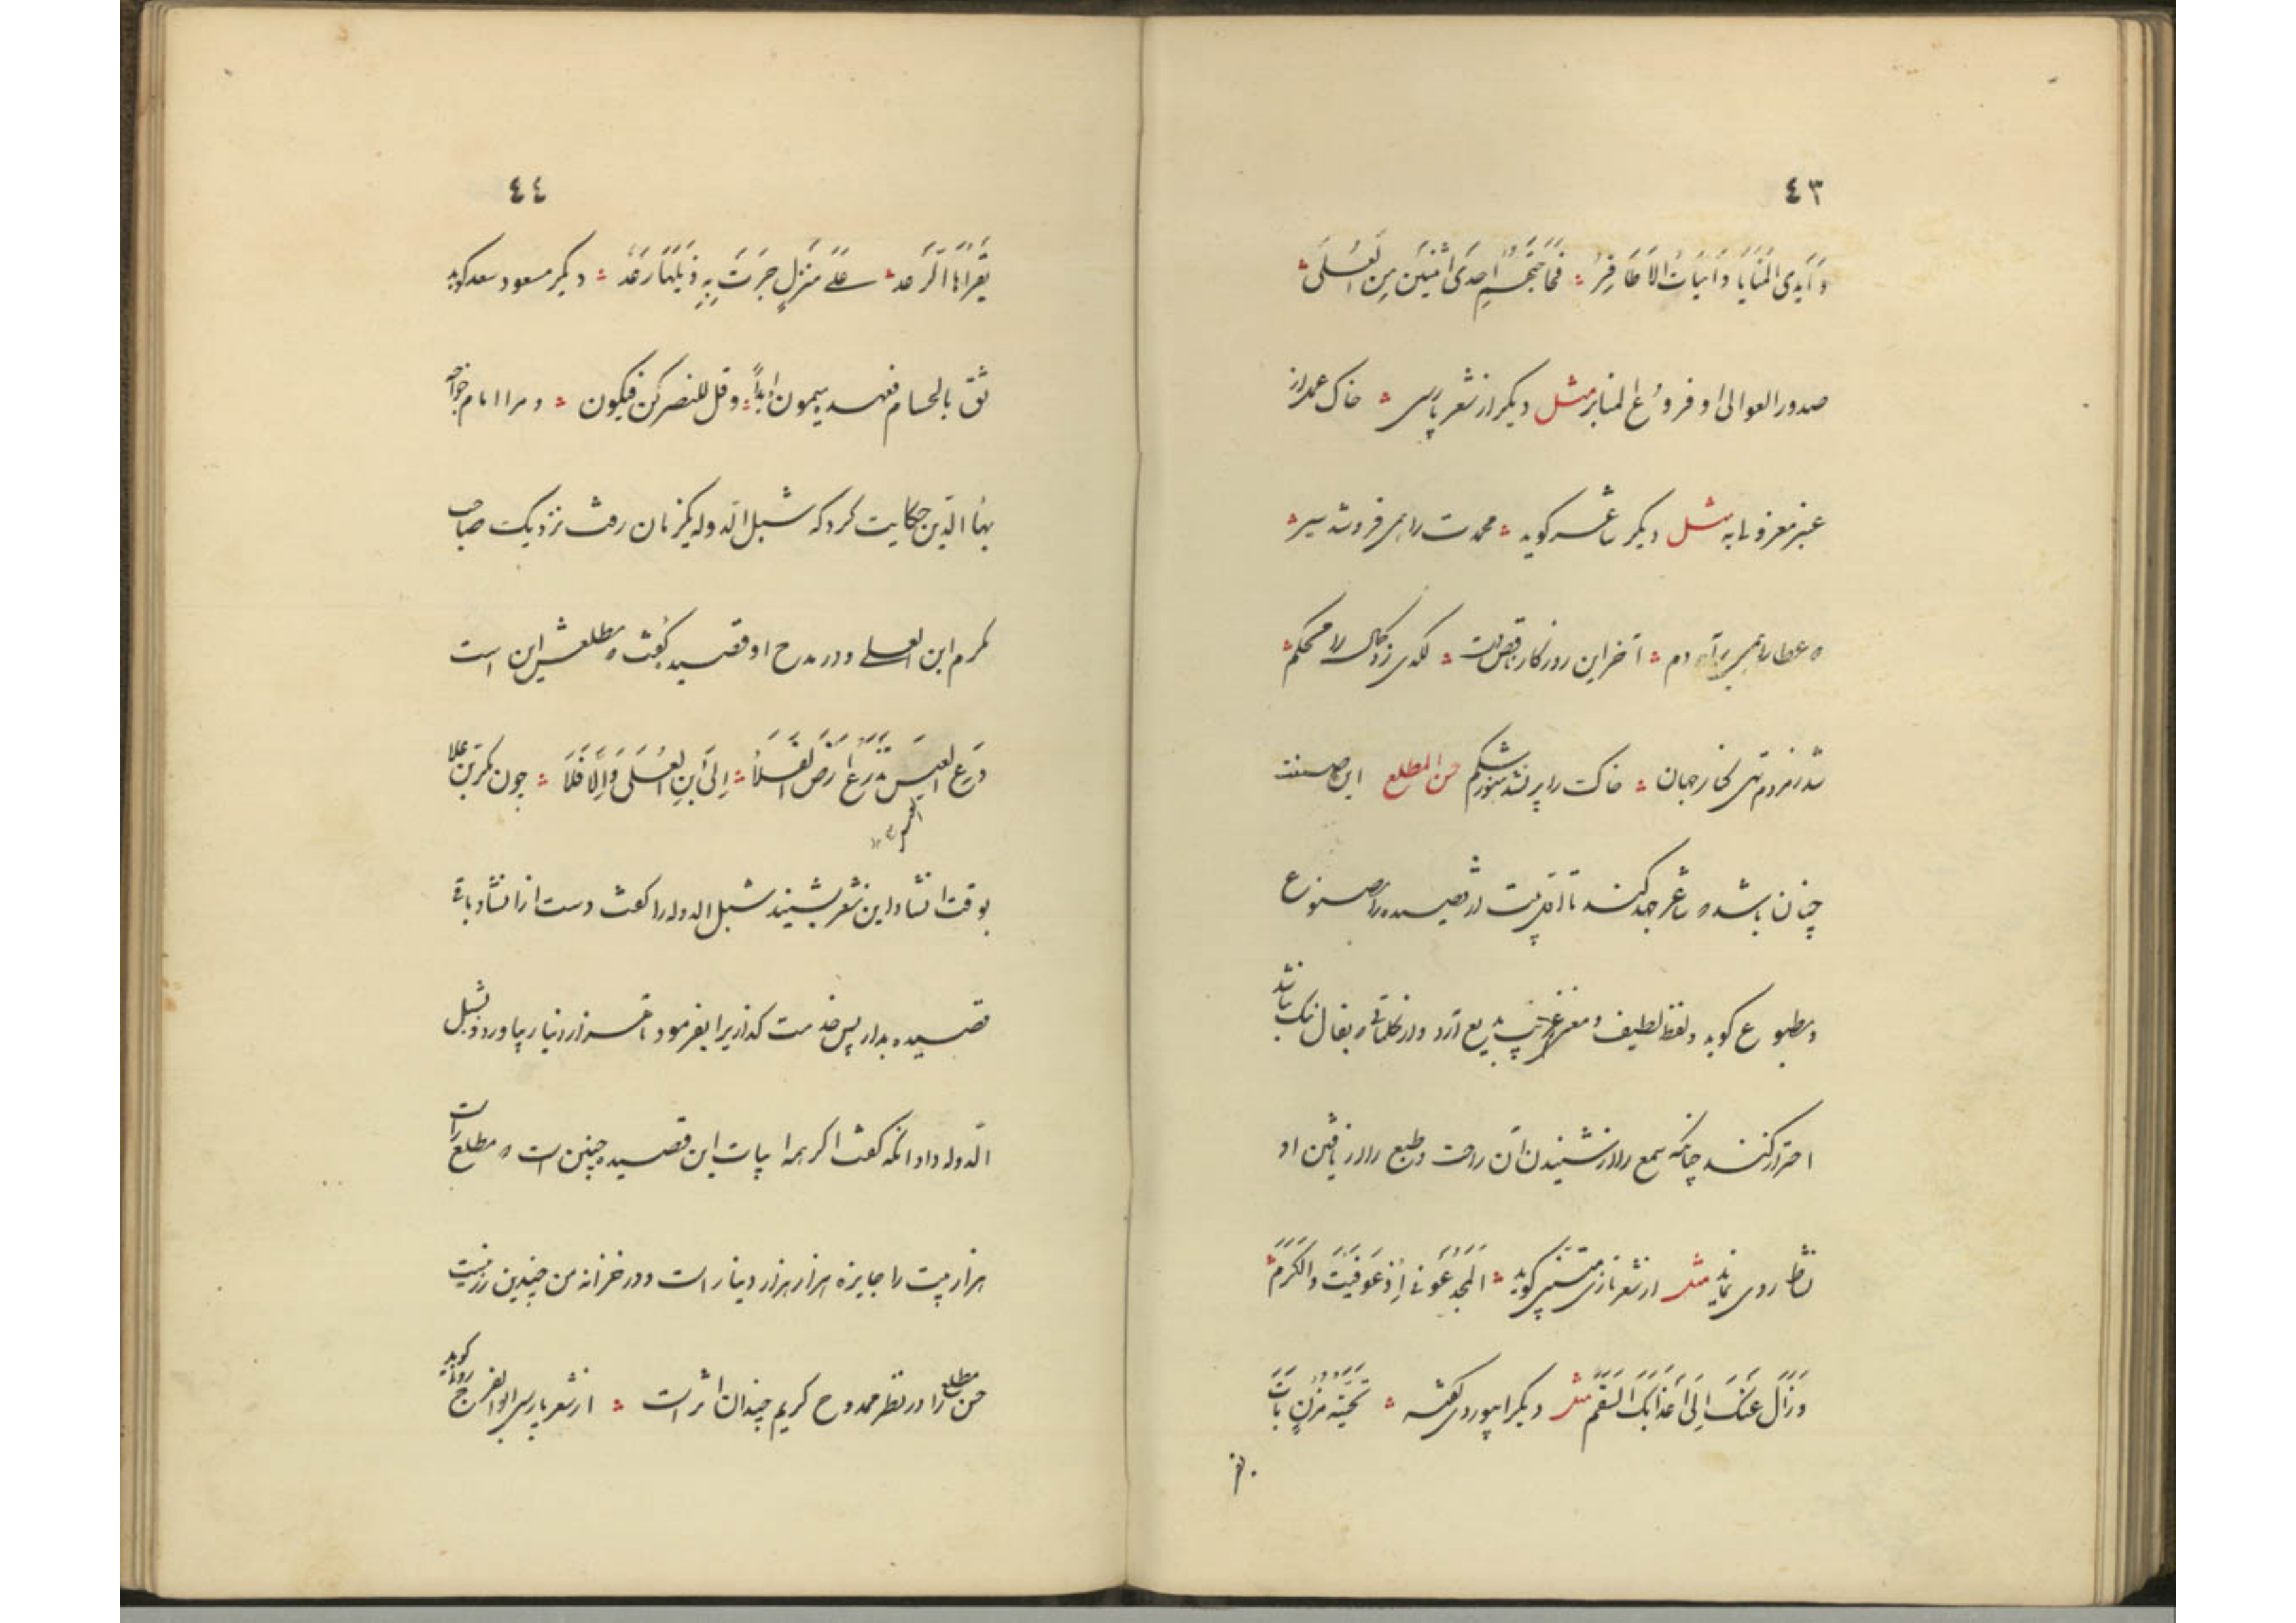 ٤٣
وَأَيْدِی المَنَايَا وَانيَابُ الاَظَافِرُ ؞ فَمَا حَتفَهُم اِحدَی اثنَيْنِ مِن العُلَی ؞
صدور العوالی او فروع المنابر مثل دیکر از شعر پارسی ؞ خاک عمداز
عنبر معزولی به مثل دیکر شاعر کوید ؞ محمدت را همی فروشد سیر ؞
و عطا را همی برآرد دم ؞ آخر این روزکار ناقص دست ؞ لکدی زد کمال را محکم ؞
شد ز مردم تهی کنار جهان ؞ خاک را پر نشد هنوز شکم حسن المطلع این صنعت
چنان باشد که شاعر جهد کند تا اول بیت از قصیده را مصنوع
و مطبوع کوید و لفظ لطیف و معنی غریب بدیع آرد و از کلماتی که بفال نیک نباشد
احتراز کند چنانکه سمع را از شنیدن آن راحت و طبع را از یافتن او
نشاط روی نماید مثلش از شعر تازی متنبی کوید ؞ المَجدُ عُوفِیَ اِذ عَوفِيتَ وَالکَرَمُ ؞
وَزَالَ عَنکَ اِلَی اَعدَائِکَ السَّقَمُ مثل دیکر ابیوردی کفته ؞ تَحِيَّةُ مُزنٍ بَاتَ
يَقرَأهَا الرَّعد ؞ عَلَی مَنزِلٍ جَرَّت بِهِ ذَيلَهَا رَعدُ ؞ دیکر مسعود سعد کوید
٤٤
ثق بالحسام فعهده میمون ابداً ؞ وقل للنصر کن فیکون ؞ و مرا امام خواجه
بهاء الدین حکایت کرد که شبل الدوله یکزمان رفت نزدیک صاحب
مکرم ابن العلی و در مدح او قصیده کفت که مطلعش این است
دَعِ العِيسَ تَذرَعُ اَرضَ الفَلَا ؞ اِلَی ابنِ العُلَی وَاِلَّا فَلَا ؞ چون مکرم بن علا
بوقت انشاد این شعر بشنید شبل الدوله را کفت دست از انشاد باقی
قصیده بدار پس خدمت کذار یرا بفرمود تا هزار دینار بیاورد و بشبل
الدوله داد انکه کفت اکر همه ابیات این قصیده چنین است که مطلع راست
هزار بیت را جایزه هزار هزار دینار است و در خزانه من چندین زر نیست
حسن مطلع را در نظر ممدوح کریم چندان اثر است ؞ از شعر پارسی ابو الفرج رونی کوید